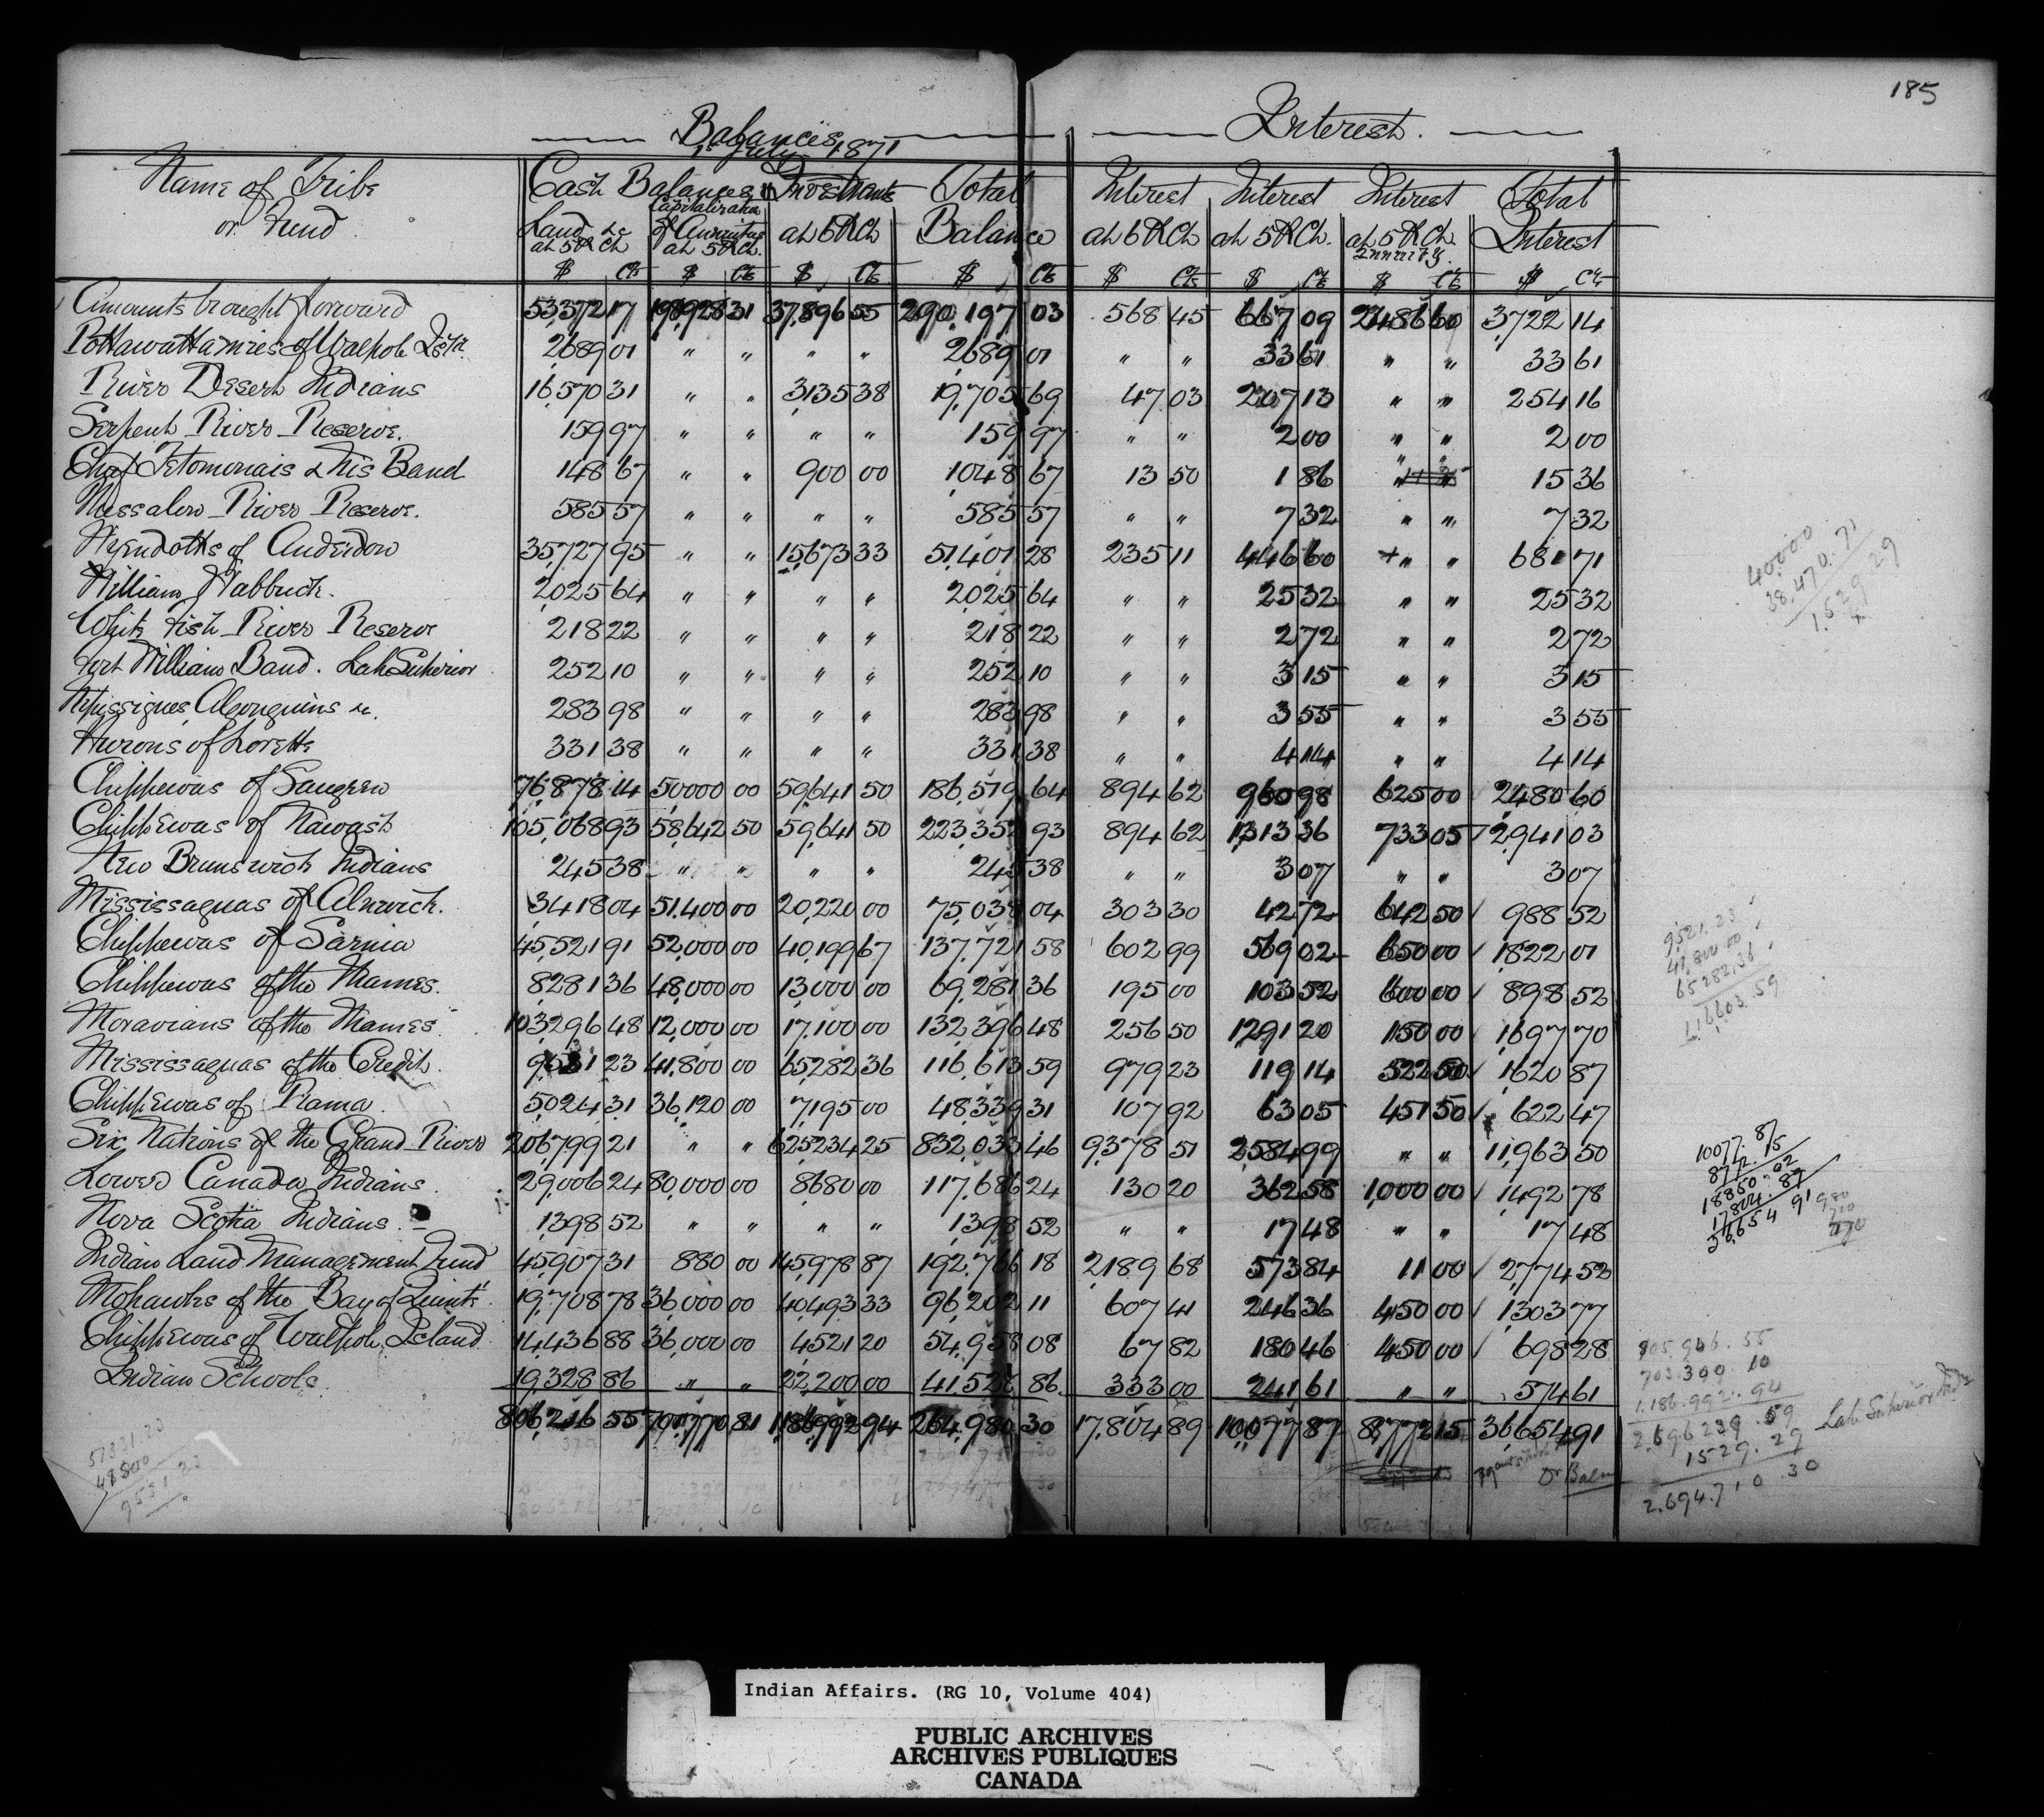 185
Balances 1st July 1871
Interest.
Name of Tribe or Fund
Cash Balances
Investments
Total
Interest
Interest
Interest
Total
Land &c at 5 P Ct
Capitalization of Annuities at 5 P Ct.
at 6 P Ct
Balance
at 6 P Ct
at 5 P Ct.
at 5 P Ct. Annuity.
Interest
$ Cts $ Cts $ Cts $ Cts $ Cts $ Cts $ Cts $ Cts
Amounts brought forward 53,372 17 37,896 55 290,197 03 568 45 667 09 3,722 14
Pottawattamies of Walpole Isld. 2,689 01 " " " " 2,689 01 " " 33 61 " " 33 61
River Desert Indians 16,570 31 " " 3,135 38 19,705 69 47 03 207 13 " " 254 16
Serpent River Reserve. 159 97 " " " " 159 97 " " 2 00 " " 2 00
Chief & His Band 148 67 " " 900 00 1,048 67 13 50 1 86 " " 15 36
River Reserve. 585 57 " " " " 585 57 " " 7 32 " " 7 32
Wyandotts of Anderdon 35,727 95 " " 15,673 33 51,401 28 235 11 446 60 + " " 681 71
William Wabbuck. 2,025 64 " " " " 2,025 64 " " 25 32 " " 25 32
White Fish River Reserve 218 22 " " " " 218 22 " " 2 72 " " 2 72
Fort William Band. Lake Superior 252 10 " " " " 252 10 " " 3 15 " " 3 15
Algonquins &c. 283 98 " " " " 283 98 " " 3 55 " " 3 55
Hurons of Lorette 331 38 " " " " 331 38 " " 4 14 " " 4 14
Chippewas of Saugeen 76,878 14 50,000 00 59,641 50 186,519 64 894 62 960 98 625 00 2,480 60
Chippewas of Nawash 105,068 93 58,642 50 59,641 50 223,352 93 894 62 1,313 36 733 05 2,941 03
New Brunswick Indians 245 38 " " " " 245 38 " " 3 07 " " 3 07
Mississaguas of Alnwick. 3,418 04 51,400 00 20,220 00 75,038 04 303 30 42 72 642 50 988 52
Chippewas of Sarnia 45,521 91 52,000 00 40,199 67 137,721 58 602 99 569 02 650 00 1,822 01
Chippewas of the Thames. 8,281 36 48,000 00 13,000 00 69,281 36 195 00 103 52 600 00 898 52
Moravians of the Thames 103,296 48 12,000 00 17,100 00 132,396 48 256 50 1,291 20 150 00 1,697 70
Mississaguas of the Credit. 9,531 23 41,800 00 65,282 36 116,613 59 979 23 119 14 522 50 1,620 87
Chippewas of Rama 5,024 31 36,120 00 7,195 00 48,339 31 107 92 63 05 451 50 622 47
Six Nations of the Grand River 206,799 21 " " 625,234 25 832,033 46 9,378 51 2,584 99 " " 11,963 50
Lower Canada Indians 29,006 24 80,000 00 8680 00 117,686 24 130 20 362 58 1,000 00 1,492 78
Nova Scotia Indians. 1,398 52 " " " " 1,398 52 " " 17 48 " " 17 48
Indian Land Management Fund 45,907 31 880 00 145,978 87 192,766 18 2,189 68 573 84 11 00 2,774 52
Mohawks of the Bay of Quinté 19,708 78 36,000 00 40,493 33 96,202 11 607 41 246 36 450 00 1,303 77
Chippewas of Walpole Island 14,436 88 36,000 00 4,521 20 54,958 08 67 82 180 46 450 00 698 28
Indian Schools. 19,328 86 " " 22,200 00 41,528 86 333 00 241 61 " " 574 61
1,186,992 94 17,804 89 10,077 87 8,772 15 36,654 91
40,000
38,470.71
1,529.29
9,521.23
41,800.00
65,282.36
116,603.59
10077.87
8772.15
18850.02
17804.89
36,654 91
703.300.10
1.186.992.94
2.696239.59
1529.29
2.694.710.30
Lake Superior
51331.23
41800
9531.23
Indian Affairs. (RG 10, Volume 404)
PUBLIC ARCHIVES
ARCHIVES PUBLIQUES
CANADA